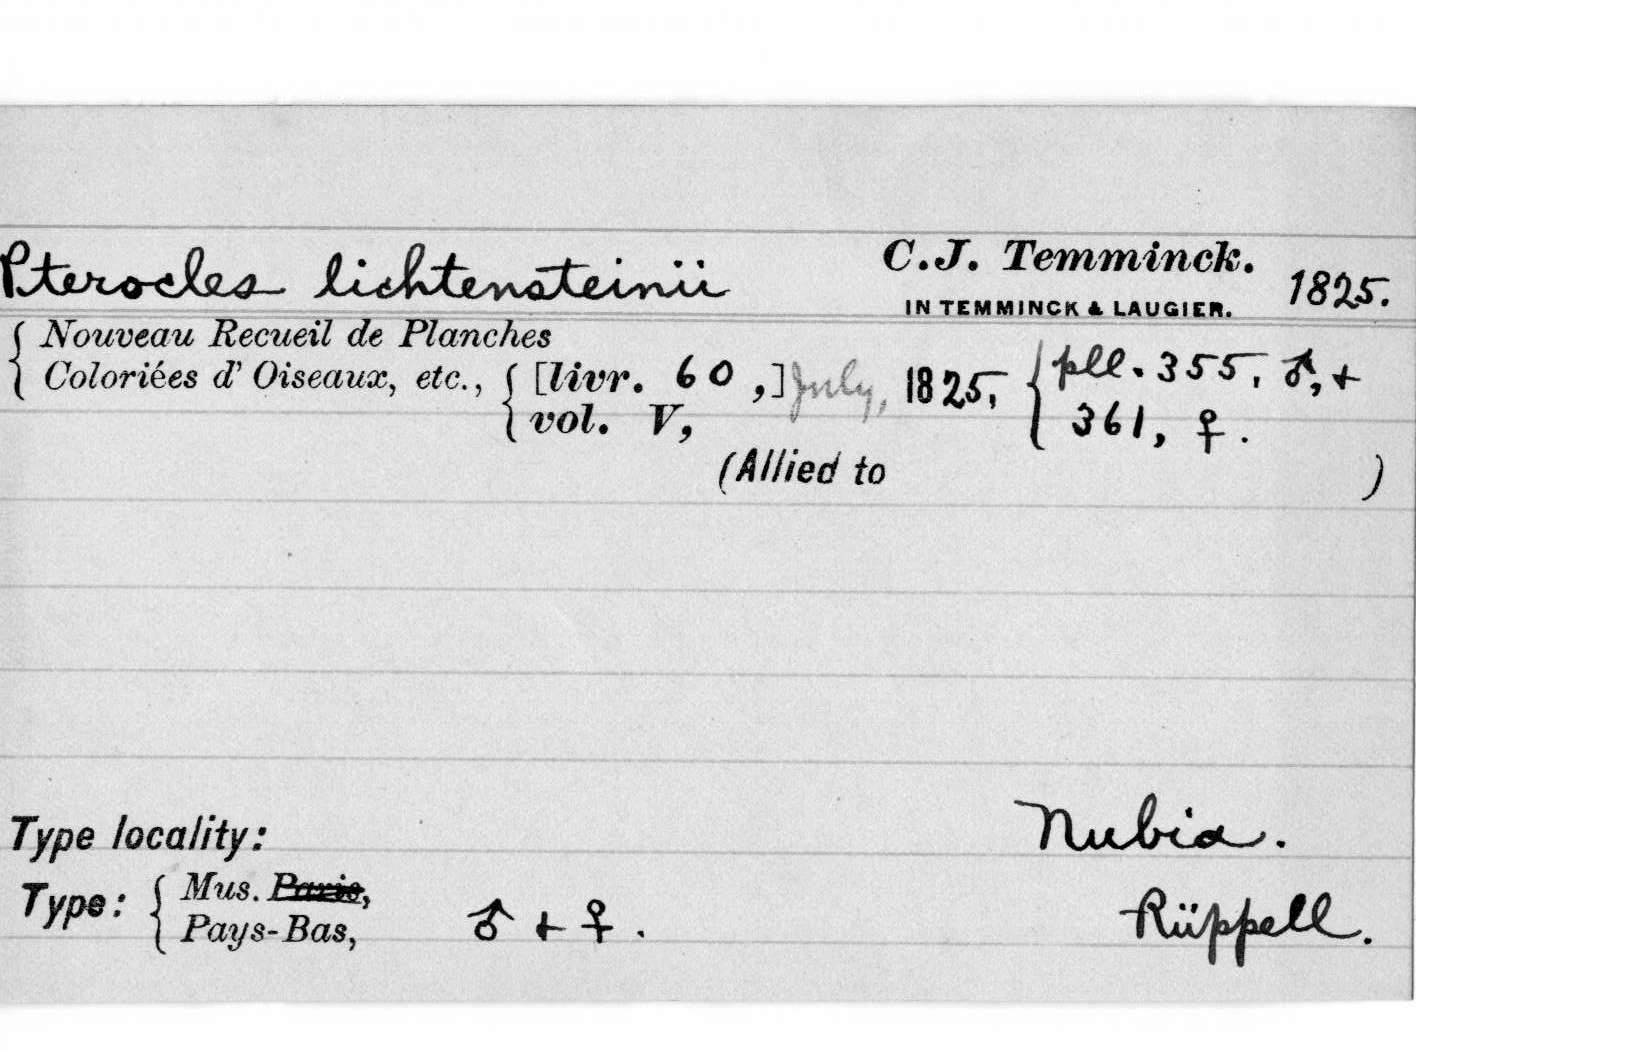 Pterocles lichtensteinii C.J. Temminck. 1825.
IN TEMMINCK & LAUGIER.
Nouveau Recueil de Planches
Coloriées d' Oiseaux, etc., [livr. 60,] July, 1825, pll. 355, ♂, +
vol. V, 361, ♀.
(Allied to )
Type locality: Nubia.
Type: Mus. Paris,
Pays-Bas, ♂ + ♀. Rüppell.